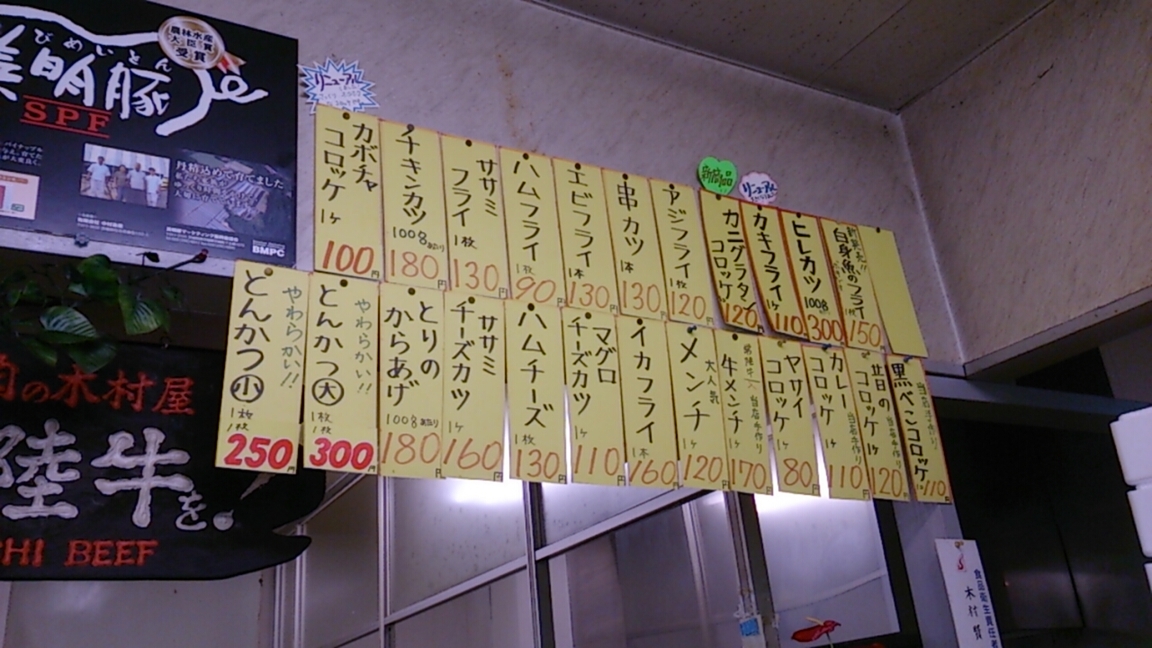 びめいとん
美明豚
SPF
農林水産
大臣賞
受賞
丹精込めて育てました
BMPC
リニューアル
カボチャ
コロッケ
1ヶ
100円
チキンカツ
100g
180円
ササミ
フライ
1枚
130円
ハムフライ
1枚
90円
エビフライ
1本
130円
串カツ
1本
130円
アジフライ
1枚
120円
新商品
カニグラタン
コロッケ
120円
リニューアル
カキフライ
1ヶ
110円
ヒレカツ
100g
300円
新発売!!
白身魚のフライ
150円
やわらかい!!
とんかつ小
1枚
250円
やわらかい!!
とんかつ大
1枚
1枚
300円
とりの
からあげ
100g
180円
ササミ
チーズカツ
1ヶ
160円
ハムチーズ
1枚
130円
マグロ
チーズカツ
1ヶ
110円
イカフライ
1本
160円
大人気
メンチ
1ヶ
120円
常陸牛入
当店手作り
牛メンチ
1ヶ
170円
ヤサイ
コロッケ
1ヶ
80円
カレー
コロッケ
1ヶ
当店手作り
110円
昔の
コロッケ
1ヶ
当店手作り
120円
当店手作り
黒べこコロッケ
110円
肉の木村屋
陸牛を!
CHI BEEF
食品衛生責任者
木村